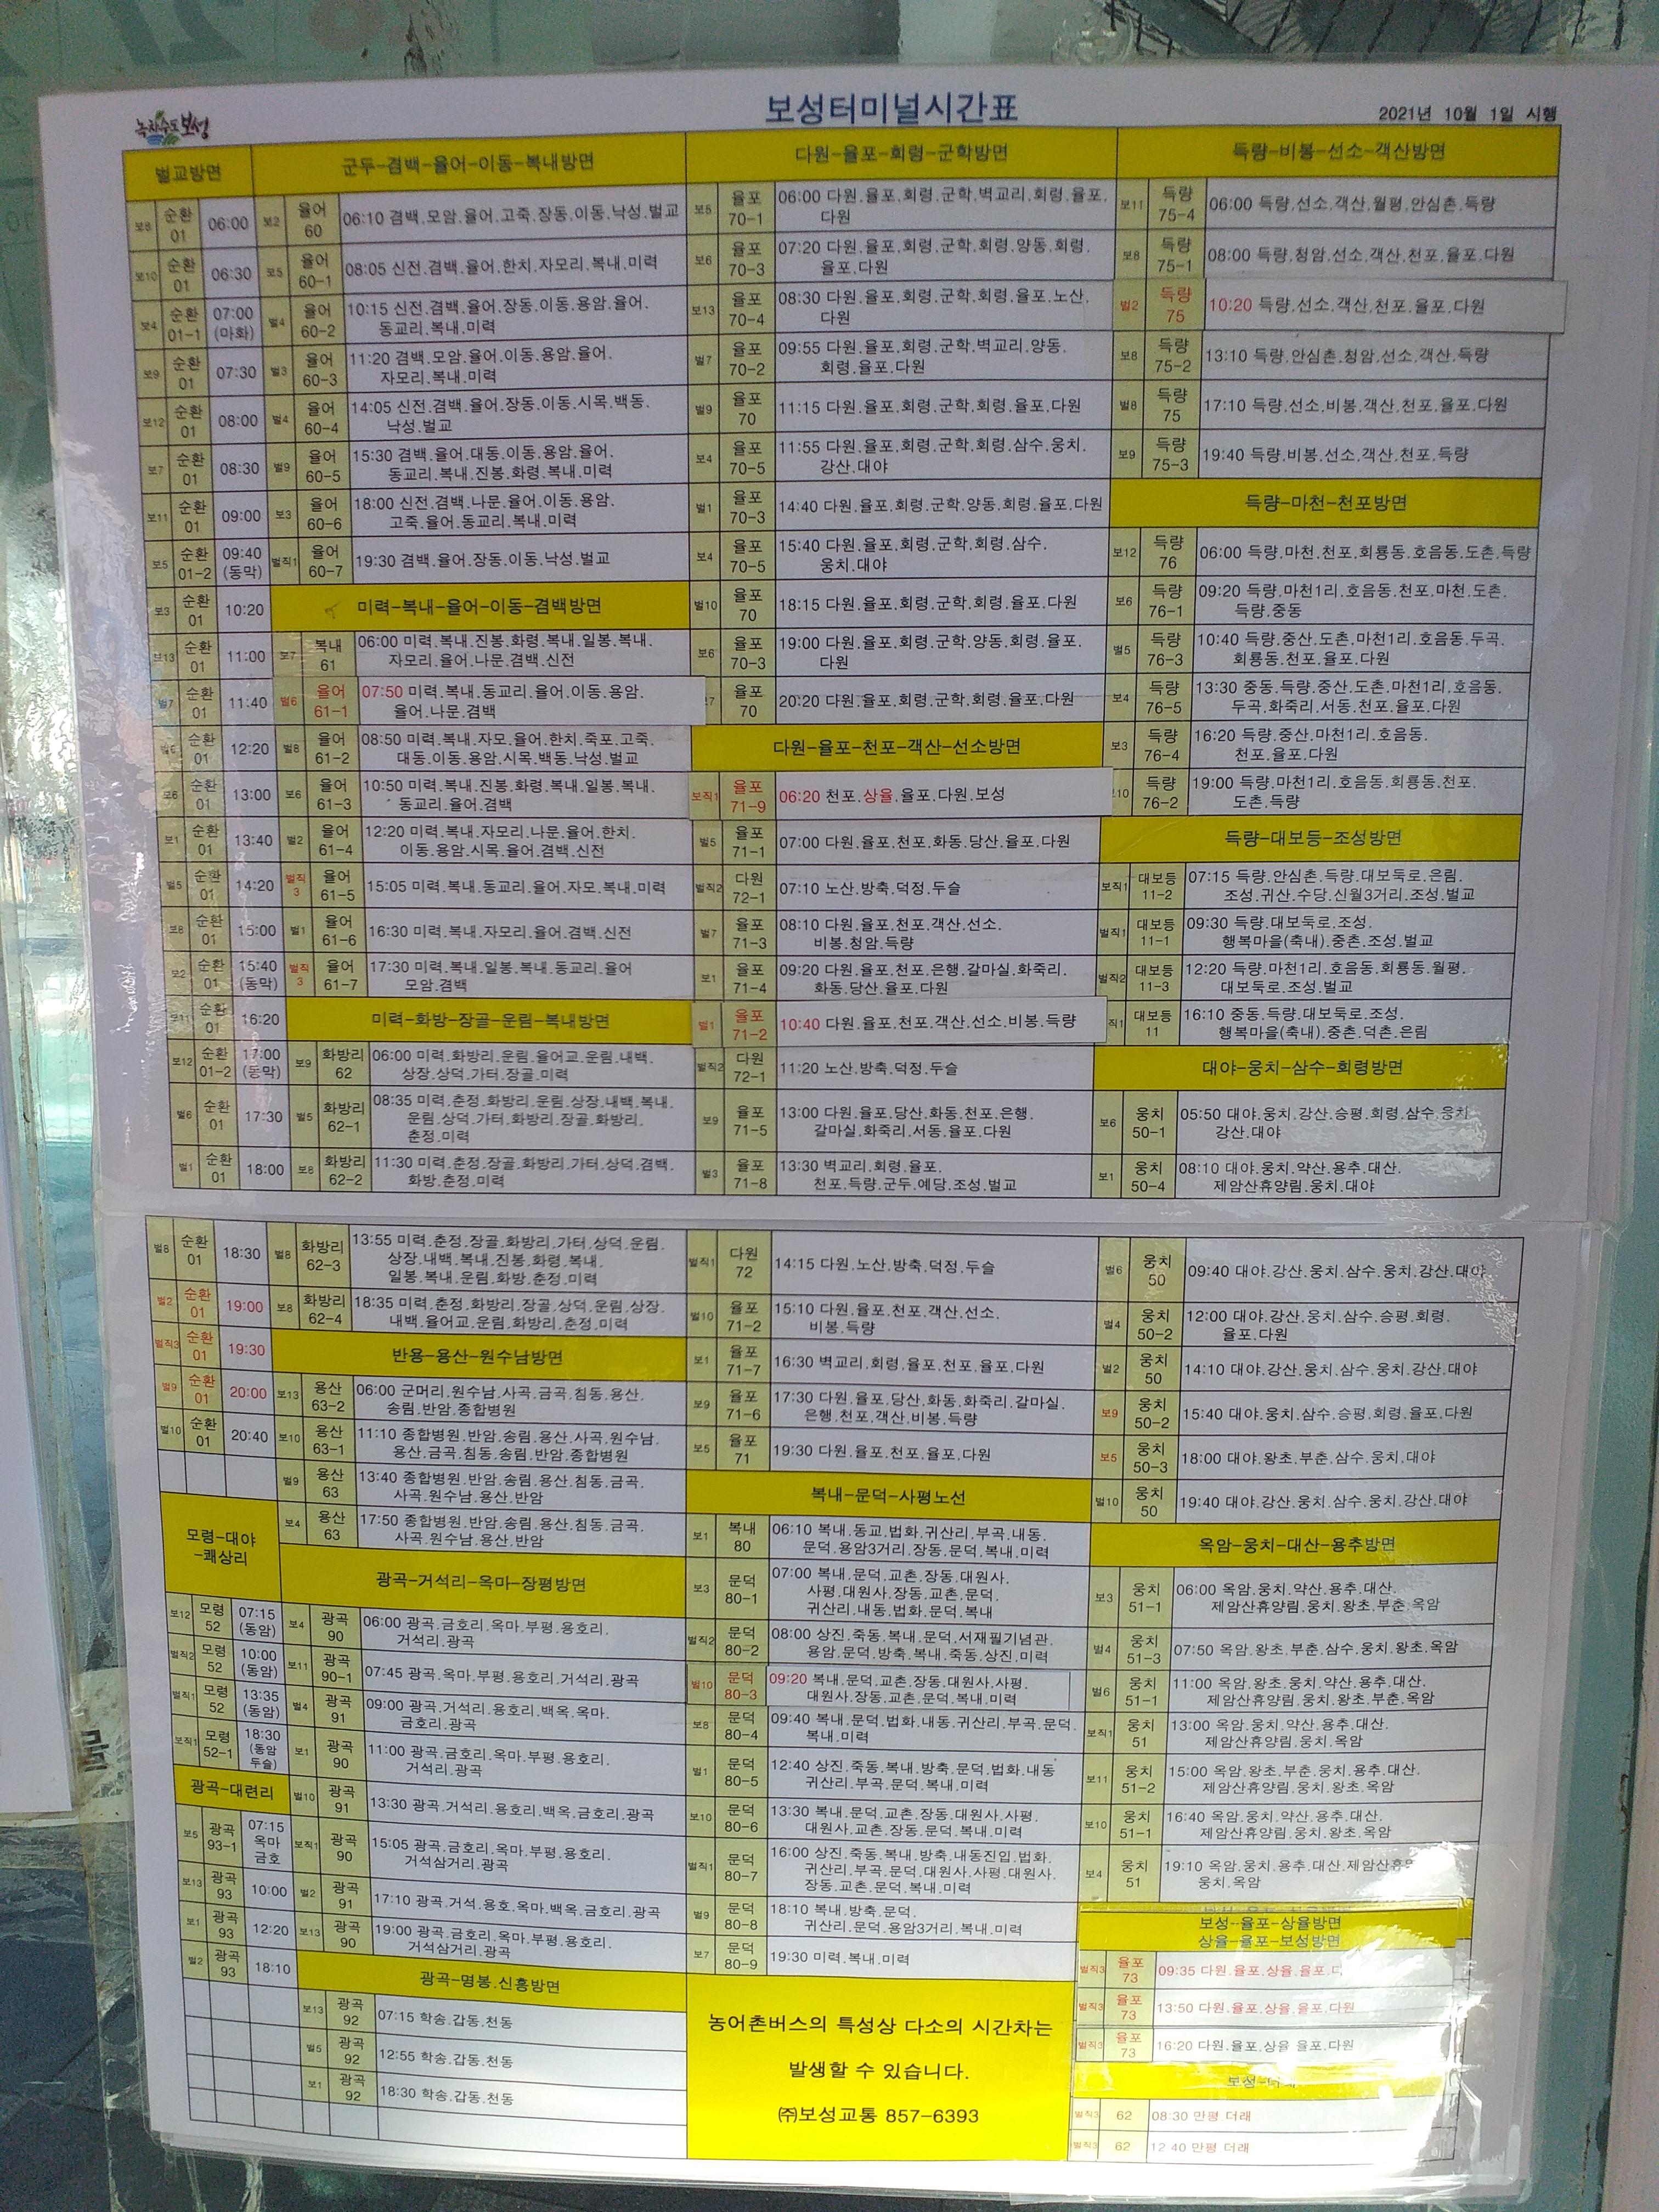 녹차수도보성
보성터미널시간표
2021년 10월 1일 시행
벌교방면
보8 순환 01 06:00
보10 순환 01 06:30
보4 순환 01-1 07:00 (마화)
보9 순환 01 07:30
보12 순환 01 08:00
보7 순환 01 08:30
보11 순환 01 09:00
보5 순환 01-2 09:40 (동막)
보3 순환 01 10:20
보13 순환 01 11:00
벌7 순환 01 11:40
순환 01 12:20
보6 순환 01 13:00
보1 순환 01 13:40
벌5 순환 01 14:20
보8 순환 01 15:00
보2 순환 01 15:40 (동막)
보11 순환 01 16:20
보12 순환 01-2 17:00 (동막)
벌6 순환 01 17:30
벌1 순환 01 18:00
벌8 순환 01 18:30
벌2 순환 01 19:00
벌직3 순환 01 19:30
벌9 순환 01 20:00
벌10 순환 01 20:40
모령-대야
-쾌상리
보12 모령 52 07:15 (동암)
벌직2 모령 52 10:00 (동암)
벌직1 모령 52 13:35 (동암)
보직1 모령 52-1 18:30 (동암 두슬)
광곡-대련리
보5 광곡 93-1 07:15 옥마 금호
보13 광곡 93 10:00
보1 광곡 93 12:20
벌2 광곡 93 18:10
군두-겸백-율어-이동-복내방면
보2 율어 60 06:10 겸백.모암.율어.고죽.장동.이동.낙성.벌교
보5 율어 60-1 08:05 신전.겸백.율어.한치.자모리.복내.미력
벌4 율어 60-2 10:15 신전.겸백.율어.장동.이동.용암.율어.
동교리.복내.미력
벌3 율어 60-3 11:20 겸백.모암.율어.이동.용암.율어.
자모리.복내.미력
벌4 율어 60-4 14:05 신전.겸백.율어.장동.이동.시목.백동.
낙성.벌교
벌9 율어 60-5 15:30 겸백.율어.대동.이동.용암.율어.
동교리.복내.진봉.화령.복내.미력
보3 율어 60-6 18:00 신전.겸백.나문.율어.이동.용암.
고죽.율어.동교리.복내.미력
벌직1 율어 60-7 19:30 겸백.율어.장동.이동.낙성.벌교
미력-복내-율어-이동-겸백방면
보7 복내 61 06:00 미력.복내.진봉.화령.복내.일봉.복내.
자모리.율어.나문.겸백.신전
벌6 율어 61-1 07:50 미력.복내.동교리.율어.이동.용암.
율어.나문.겸백
벌8 율어 61-2 08:50 미력.복내.자모.율어.한치.죽포.고죽.
대동.이동.용암.시목.백동.낙성.벌교
보6 율어 61-3 10:50 미력.복내.진봉.화령.복내.일봉.복내.
동교리.율어.겸백
벌2 율어 61-4 12:20 미력.복내.자모리.나문.율어.한치.
이동.용암.시목.율어.겸백.신전
벌직3 율어 61-5 15:05 미력.복내.동교리.율어.자모.복내.미력
벌1 율어 61-6 16:30 미력.복내.자모리.율어.겸백.신전
벌직3 율어 61-7 17:30 미력.복내.일봉.복내.동교리.율어
모암.겸백
미력-화방-장골-운림-복내방면
보9 화방리 62 06:00 미력.화방리.운림.율어교.운림.내백.
상장.상덕.가터.장골.미력
벌5 화방리 62-1 08:35 미력.춘정.화방리.운림.상장.내백.복내.
운림.상덕.가터.화방리.장골.화방리.
춘정.미력
보8 화방리 62-2 11:30 미력.춘정.장골.화방리.가터.상덕.겸백.
화방.춘정.미력
벌8 화방리 62-3 13:55 미력.춘정.장골.화방리.가터.상덕.운림.
상장.내백.복내.진봉.화령.복내.
일봉.복내.운림.화방.춘정.미력
보8 화방리 62-4 18:35 미력.춘정.화방리.장골.상덕.운림.상장.
내백.율어교.운림.화방리.춘정.미력
반용-용산-원수남방면
보13 용산 63-2 06:00 군머리.원수남.사곡.금곡.침동.용산.
송림.반암.종합병원
보10 용산 63-1 11:10 종합병원.반암.송림.용산.사곡.원수남.
용산.금곡.침동.송림.반암.종합병원
벌9 용산 63 13:40 종합병원.반암.송림.용산.침동.금곡.
사곡.원수남.용산.반암
보4 용산 63 17:50 종합병원.반암.송림.용산.침동.금곡.
사곡.원수남.용산.반암
광곡-거석리-옥마-장평방면
보4 광곡 90 06:00 광곡.금호리.옥마.부평.용호리.
거석리.광곡
보11 광곡 90-1 07:45 광곡.옥마.부평.용호리.거석리.광곡
벌4 광곡 91 09:00 광곡.거석리.용호리.백옥.옥마.
금호리.광곡
보1 광곡 90 11:00 광곡.금호리.옥마.부평.용호리.
거석리.광곡
벌10 광곡 91 13:30 광곡.거석리.용호리.백옥.금호리.광곡
보직1 광곡 90 15:05 광곡.금호리.옥마.부평.용호리.
거석삼거리.광곡
벌2 광곡 91 17:10 광곡.거석.용호.옥마.백옥.금호리.광곡
보13 광곡 90 19:00 광곡.금호리.옥마.부평.용호리.
거석삼거리.광곡
광곡-명봉.신흥방면
보13 광곡 92 07:15 학송.갑동.천동
벌5 광곡 92 12:55 학송.갑동.천동
보1 광곡 92 18:30 학송.갑동.천동
다원-율포-회령-군학방면
보5 율포 70-1 06:00 다원.율포.회령.군학.벽교리.회령.율포.
다원
보6 율포 70-3 07:20 다원.율포.회령.군학.회령.양동.회령.
율포.다원
보13 율포 70-4 08:30 다원.율포.회령.군학.회령.율포.노산.
다원
벌7 율포 70-2 09:55 다원.율포.회령.군학.벽교리.양동.
회령.율포.다원
벌9 율포 70 11:15 다원.율포.회령.군학.회령.율포.다원
보4 율포 70-5 11:55 다원.율포.회령.군학.회령.삼수.웅치.
강산.대야
벌1 율포 70-3 14:40 다원.율포.회령.군학.양동.회령.율포.다원
보4 율포 70-5 15:40 다원.율포.회령.군학.회령.삼수.
웅치.대야
벌10 율포 70 18:15 다원.율포.회령.군학.회령.율포.다원
보6 율포 70-3 19:00 다원.율포.회령.군학.양동.회령.율포.
다원
7 율포 70 20:20 다원.율포.회령.군학.회령.율포.다원
다원-율포-천포-객산-선소방면
보직1 율포 71-9 06:20 천포.상율.율포.다원.보성
벌5 율포 71-1 07:00 다원.율포.천포.화동.당산.율포.다원
벌직2 다원 72-1 07:10 노산.방축.덕정.두슬
벌7 율포 71-3 08:10 다원.율포.천포.객산.선소.
비봉.청암.득량
보1 율포 71-4 09:20 다원.율포.천포.은행.갈마실.화죽리.
화동.당산.율포.다원
벌1 율포 71-2 10:40 다원.율포.천포.객산.선소.비봉.득량
벌직2 다원 72-1 11:20 노산.방축.덕정.두슬
보9 율포 71-5 13:00 다원.율포.당산.화동.천포.은행.
갈마실.화죽리.서동.율포.다원
벌3 율포 71-8 13:30 벽교리.회령.율포.
천포.득량.군두.예당.조성.벌교
벌직1 다원 72 14:15 다원.노산.방축.덕정.두슬
벌10 율포 71-2 15:10 다원.율포.천포.객산.선소.
비봉.득량
보1 율포 71-7 16:30 벽교리.회령.율포.천포.율포.다원
보9 율포 71-6 17:30 다원.율포.당산.화동.화죽리.갈마실.
은행.천포.객산.비봉.득량
보5 율포 71 19:30 다원.율포.천포.율포.다원
복내-문덕-사평노선
보1 복내 80 06:10 복내.동교.법화.귀산리.부곡.내동.
문덕.용암3거리.장동.문덕.복내.미력
보3 문덕 80-1 07:00 복내.문덕.교촌.장동.대원사.
사평.대원사.장동.교촌.문덕.
귀산리.내동.법화.문덕.복내
벌직2 문덕 80-2 08:00 상진.죽동.복내.문덕.서재필기념관.
용암.문덕.방축.복내.죽동.상진.미력
벌10 문덕 80-3 09:20 복내.문덕.교촌.장동.대원사.사평.
대원사.장동.교촌.문덕.복내.미력
보8 문덕 80-4 09:40 복내.문덕.법화.내동.귀산리.부곡.문덕.
복내.미력
벌1 문덕 80-5 12:40 상진.죽동.복내.방축.문덕.법화.내동
귀산리.부곡.문덕.복내.미력
보10 문덕 80-6 13:30 복내.문덕.교촌.장동.대원사.사평.
대원사.교촌.장동.문덕.복내.미력
벌직1 문덕 80-7 16:00 상진.죽동.복내.방축.내동진입.법화.
귀산리.부곡.문덕.대원사.사평.대원사.
장동.교촌.문덕.복내.미력
벌9 문덕 80-8 18:10 복내.방축.문덕.
귀산리.문덕.용암3거리.복내.미력
보7 문덕 80-9 19:30 미력.복내.미력
농어촌버스의 특성상 다소의 시간차는
발생할 수 있습니다.
㈜보성교통 857-6393
득량-비봉-선소-객산방면
보11 득량 75-4 06:00 득량.선소.객산.월평.안심촌.득량
보8 득량 75-1 08:00 득량.청암.선소.객산.천포.율포.다원
벌2 득량 75 10:20 득량.선소.객산.천포.율포.다원
보8 득량 75-2 13:10 득량.안심촌.청암.선소.객산.득량
벌8 득량 75 17:10 득량.선소.비봉.객산.천포.율포.다원
보9 득량 75-3 19:40 득량.비봉.선소.객산.천포.득량
득량-마천-천포방면
보12 득량 76 06:00 득량.마천.천포.회룡동.호음동.도촌.득량
보6 득량 76-1 09:20 득량.마천1리.호음동.천포.마천.도촌.
득량.중동
벌5 득량 76-3 10:40 득량.중산.도촌.마천1리.호음동.두곡.
회룡동.천포.율포.다원
보4 득량 76-5 13:30 중동.득량.중산.도촌.마천1리.호음동.
두곡.화죽리.서동.천포.율포.다원
보3 득량 76-4 16:20 득량.중산.마천1리.호음동.
천포.율포.다원
10 득량 76-2 19:00 득량.마천1리.호음동.회룡동.천포.
도촌.득량
득량-대보등-조성방면
보직1 대보등 11-2 07:15 득량.안심촌.득량.대보둑로.은림.
조성.귀산.수당.신월3거리.조성.벌교
벌직1 대보등 11-1 09:30 득량.대보둑로.조성.
행복마을(축내).중촌.조성.벌교
벌직2 대보등 11-3 12:20 득량.마천1리.호음동.회룡동.월평.
대보둑로.조성.벌교
직1 대보등 11 16:10 중동.득량.대보둑로.조성.
행복마을(축내).중촌.덕촌.은림
대야-웅치-삼수-회령방면
보6 웅치 50-1 05:50 대야.웅치.강산.승평.회령.삼수.웅치
강산.대야
보1 웅치 50-4 08:10 대야.웅치.약산.용추.대산.
제암산휴양림.웅치.대야
벌6 웅치 50 09:40 대야.강산.웅치.삼수.웅치.강산.대야
벌4 웅치 50-2 12:00 대야.강산.웅치.삼수.승평.회령.
율포.다원
벌2 웅치 50 14:10 대야.강산.웅치.삼수.웅치.강산.대야
보9 웅치 50-2 15:40 대야.웅치.삼수.승평.회령.율포.다원
보5 웅치 50-3 18:00 대야.왕초.부춘.삼수.웅치.대야
벌10 웅치 50 19:40 대야.강산.웅치.삼수.웅치.강산.대야
옥암-웅치-대산-용추방면
보3 웅치 51-1 06:00 옥암.웅치.약산.용추.대산.
제암산휴양림.웅치.왕초.부춘.옥암
벌4 웅치 51-3 07:50 옥암.왕초.부춘.삼수.웅치.왕초.옥암
벌6 웅치 51-1 11:00 옥암.왕초.웅치.약산.용추.대산.
제암산휴양림.웅치.왕초.부춘.옥암
보직1 웅치 51 13:00 옥암.웅치.약산.용추.대산.
제암산휴양림.웅치.옥암
보11 웅치 51-2 15:00 옥암.왕초.부춘.웅치.용추.대산.
제암산휴양림.웅치.왕초.옥암
보10 웅치 51-1 16:40 옥암.웅치.약산.용추.대산.
제암산휴양림.웅치.왕초.옥암
보4 웅치 51 19:10 옥암.웅치.용추.대산.제암산휴
웅치.옥암
보성-율포-상율방면
상율-율포-보성방면
벌직3 율포 73 09:35 다원.율포.상율.율포.
벌직3 율포 73 13:50 다원.율포.상율.율포.다원
벌직3 율포 73 16:20 다원.율포.상율 율포.다원
보성-
벌직3 62 08:30 만평.더래
벌직3 62 12:40 만평 더래